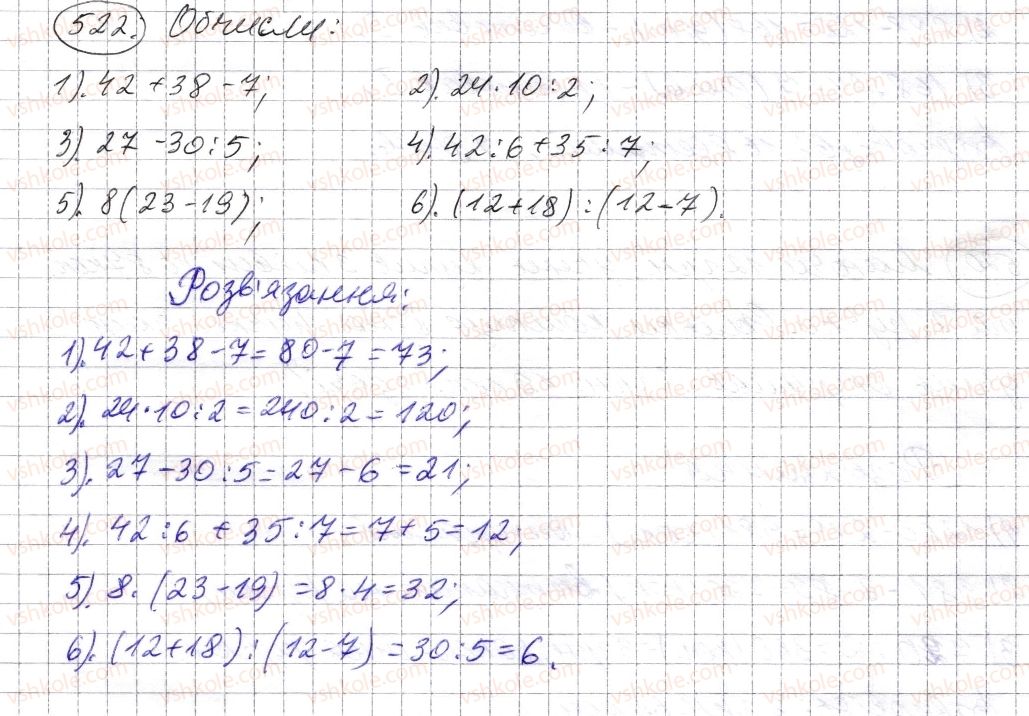 522. Обчисли:
1). 42 + 38 - 7; 2). 24 · 10 : 2;
3). 27 - 30 : 5; 4). 42 : 6 + 35 : 7;
5). 8(23 - 19); 6). (12 + 18) : (12 - 7).
Розв'язання:
1). 42 + 38 - 7 = 80 - 7 = 73;
2). 24 · 10 : 2 = 240 : 2 = 120;
3). 27 - 30 : 5 = 27 - 6 = 21;
4). 42 : 6 + 35 : 7 = 7 + 5 = 12;
5). 8 · (23 - 19) = 8 · 4 = 32;
6). (12 + 18) : (12 - 7) = 30 : 5 = 6.
vshkole.com